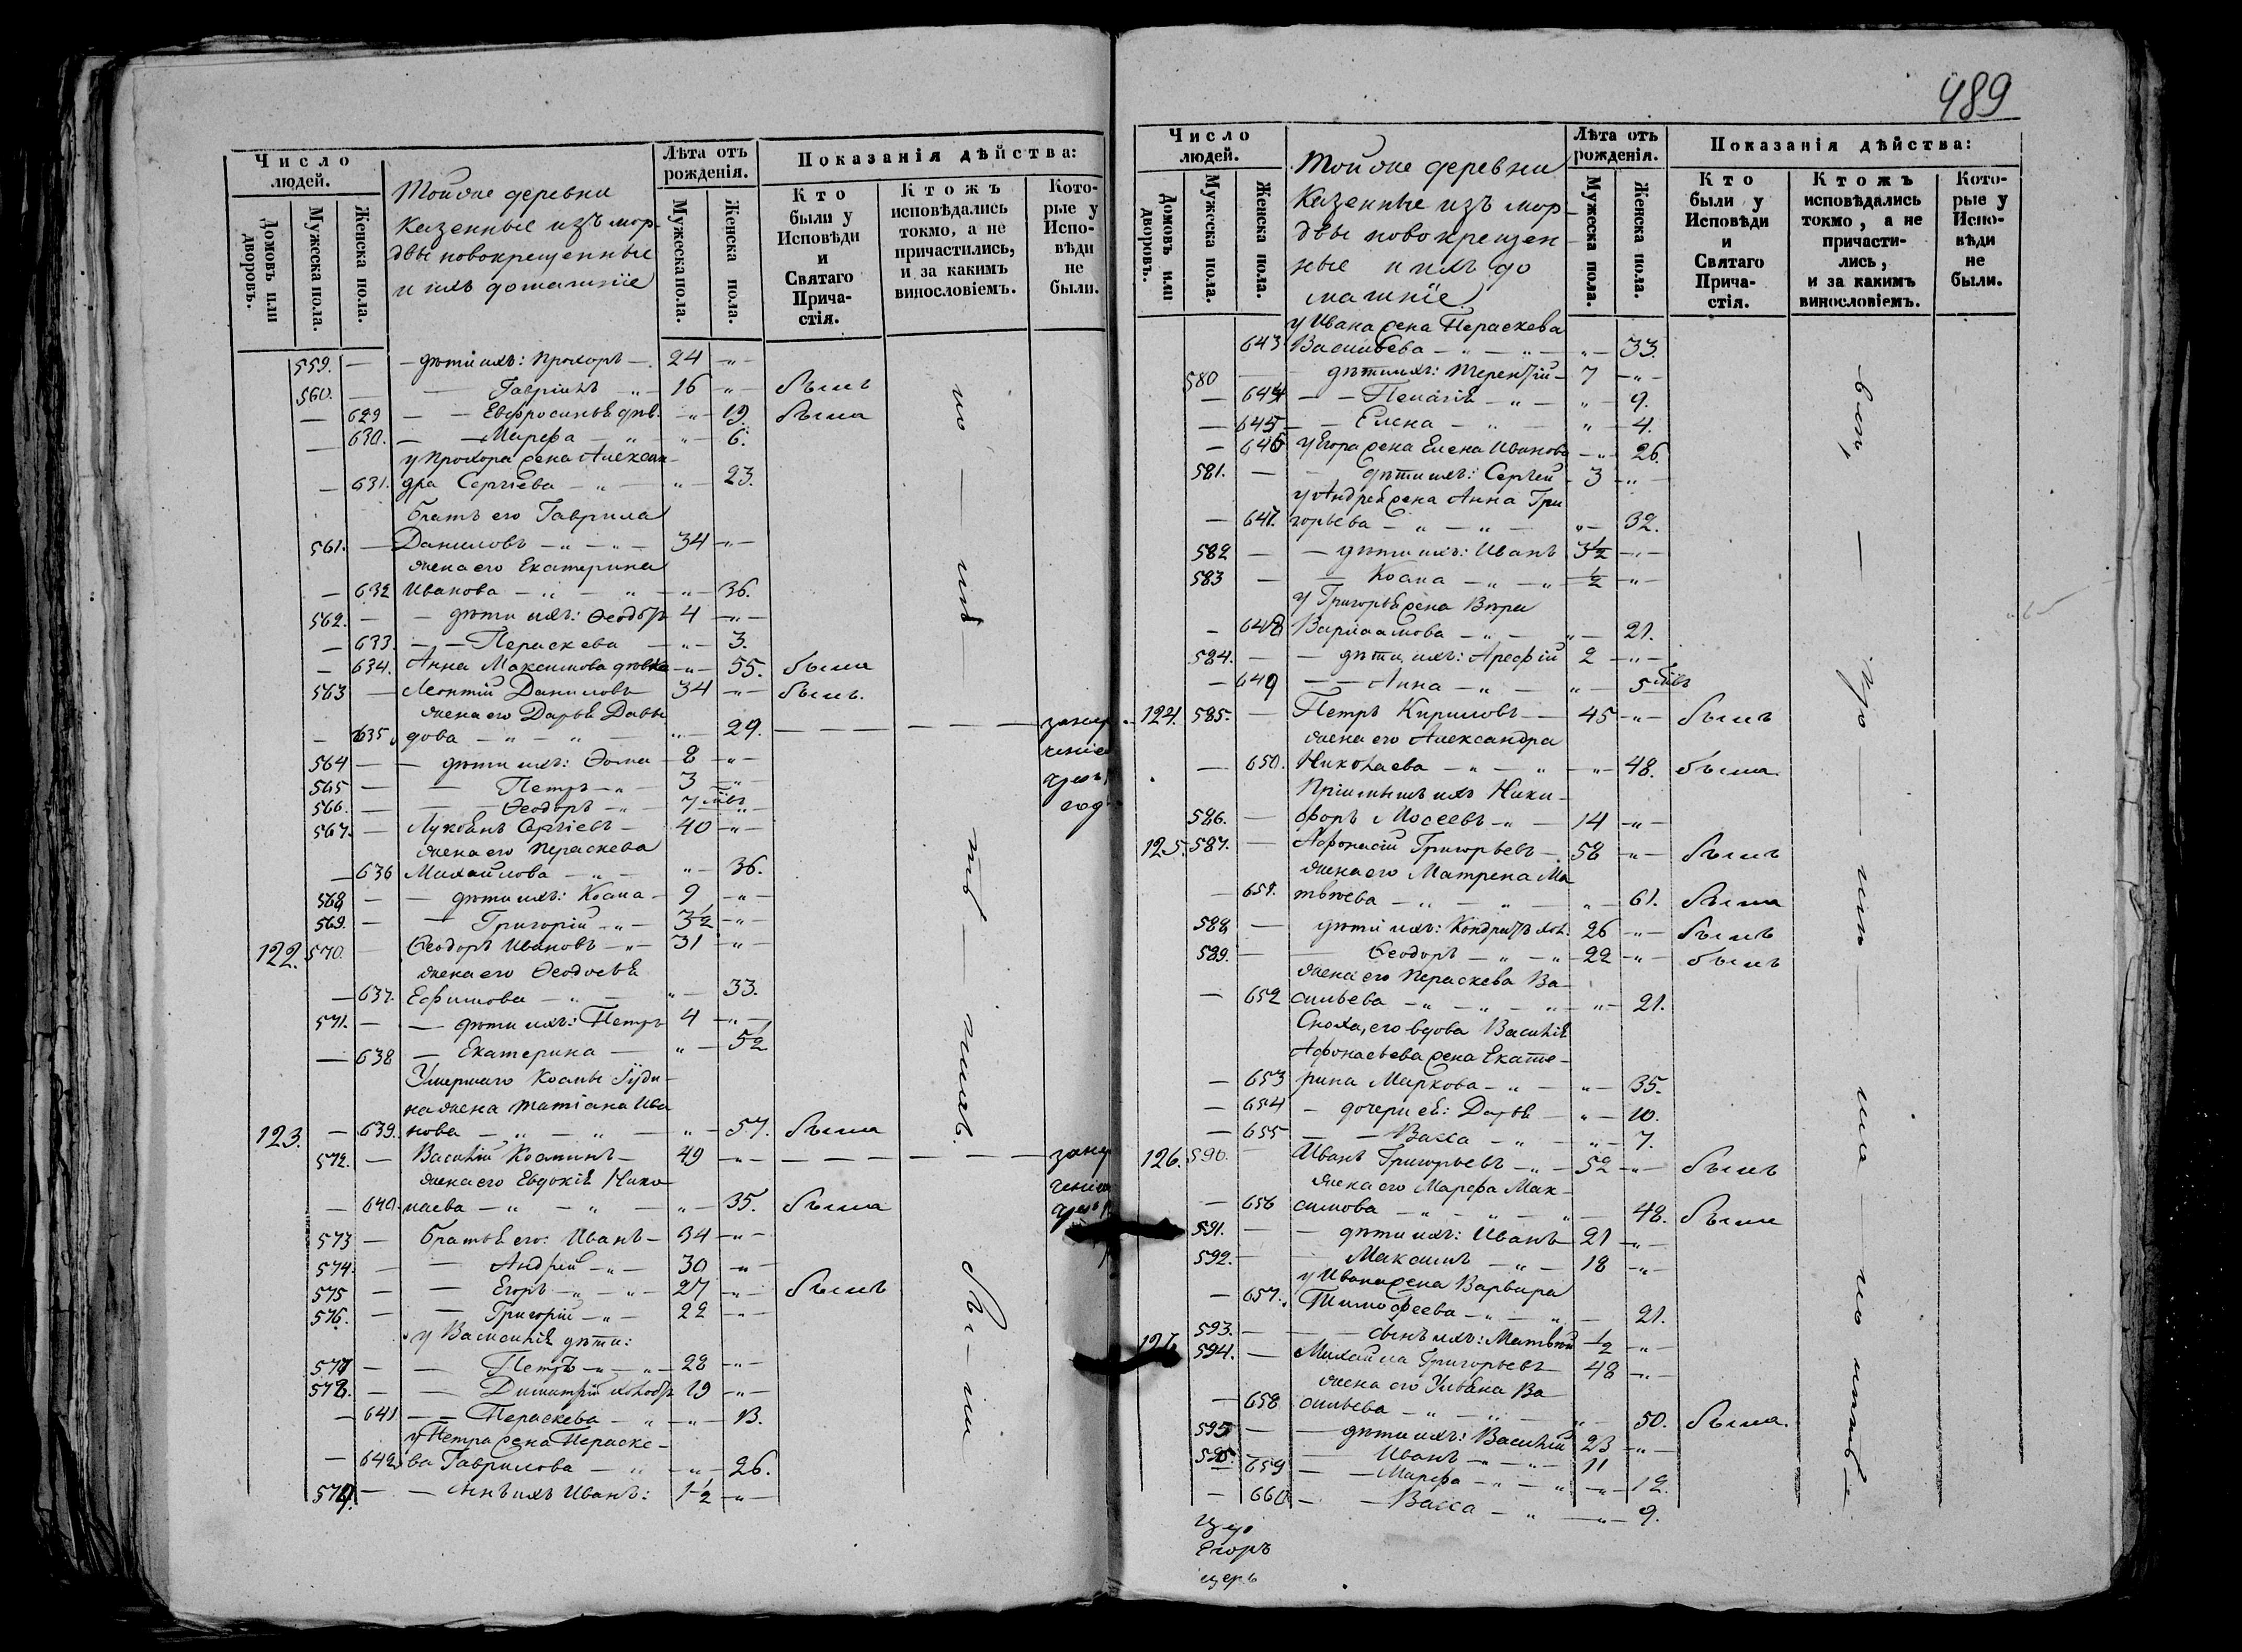 489
Число людей.
Домовъ или дворовъ.
Мужеска пола.
Женска пола.
Тойже деревни
казенные изъ мор-
двы новокрещенные
и ихъ домашніе
Лѣта отъ рожденія.
Мужеска пола.
Женска пола.
Показанія дѣйства:
Кто были у Исповѣди и Святаго Причастія.
Ктожъ исповѣдались токмо, а не причастились, и за какимъ винословіемъ.
Которые у Исповѣди не были.
559. — — дѣти ихъ: Прохоръ — 24 —„—
560. — — Гавріилъ —„— 16 —„— былъ
— 629 — — Евфросинья дѣв. —„— 19. была
— 630. — — Марфа —„— „— 6.
у Прохора жена Алексан-
— 631. дра Сергіева —„— „— 23.
братъ его Гаврила
561. — Даниловъ —„—„— 34 —„—
жена его Екатерина
— 632 Иванова —„—„— —„— 36.
562. — — дѣти ихъ: Ѳеодоръ 4 —„—
— 633. — — Параскева —„— 3.
— 634. Анна Максимова дѣвка —„— 55. была
563 — Леонтій Даниловъ — 34 —„— былъ.
жена его Дарья Давы
— 635. дова —„—„— „— 29. — — — — — —
564 — — дѣти ихъ: Ѳома — 8 —„—
565 — — Петръ —„— 3 —„—
566. — — Ѳеодоръ —„— 7 мѣс.
567. — Лукьянъ Сергіевъ — 40 —„—
жена его Параскева
— 636 Михайлова —„— „— 36.
568 — — дѣти ихъ: Косма — 9 —„—
569. — — Григорій —„— 3½ —„—
122. 570. — Ѳеодоръ Ивановъ —„— 31 —„—
жена его Ѳеодосья
— 637. Ефимова —„— „— 33.
571. — — дѣти ихъ: Петръ 4 —„—
— 638 — Екатерина — „—
Умершаго Космы
на жена Татіана Ива
123. — 639. нова —„—„— —„— 57. была
572. — Василій Косминъ — 49 —„— — — — — —
жена его Евдокія Нико
— 640. лаева —„—„— „— 35. была
573 — братья его: Иванъ — 34 —„—
574. — — Андрей —„— 30 —„—
575 — — Егоръ —„—„— 27 —„— былъ
576. — — Григорій —„— 22 —„—
у Василія дѣти:
577 — — Петръ —„—„— 28 —„—
578. — — Димитрій 19 —„—
— 641 — — Параскева —„— —„— 13.
у Петра жена Параске-
— 642 ва Гаврилова —„— —„— 26.
579. — — сынъ ихъ Иванъ: 1½ —„—
Число людей.
Домовъ или дворовъ.
Мужеска пола.
Женска пола.
Тойже деревни
Казенные изъ мор-
двы новокрещен-
ные и ихъ до
машніе
Лѣта отъ рожденія.
Мужеска пола.
Женска пола.
Показанія дѣйства:
Кто были у Исповѣди и Святаго Причастія.
Ктожъ исповѣдались токмо, а не причастились, и за какимъ винословіемъ.
Которые у Исповѣди не были.
у Ивана жена Параскева
643 Васильева —„—„— „— 33.
580 — дѣти ихъ: Терентій — 7 —„—
— 644 — — Пелагія —„— „— 9.
— 645 — — Елена —„— „— 4.
— 646 у Егора жена Елена Иванова —„— 26.
581. — — дѣти ихъ: Сергей — 3 —„—
у Андрея жена Анна Гри
— 647. горьева —„—„— „— 32.
582 — — дѣти ихъ: Иванъ 3½ —„—
583 — — Косма —„—„— ½ —„—
у Григорья жена Вѣра
— 648 Варлаамова —„— „— 21.
584. — — дѣти ихъ: Арефій 2 —„—
— 649 — — Анна —„— „— 5 мѣс.
124. 585. — Петръ Кириловъ — 45 —„— былъ
жена его Александра
— 650. Николаева —„—„— —„— 48. была.
Пріемышъ ихъ Ники-
586. — форъ Мосеевъ —„— 14 —„—
125. 587. — Афонасій Григорьевъ — 58 —„— былъ
жена его Матрена Ма
— 651. твѣева —„—„— „— 61. была
588 — дѣти ихъ: Кондратъ хол. 26 —„— былъ
589. — — Ѳеодоръ —„—„— 22 —„— былъ
жена его Параскева Ва-
— 652 сильева —„—„— —„— 21.
Сноха, его вдова Василія
Афонасьева жена Екате-
— 653 рина Маркова —„— „— 35.
— 654 — дочери ея: Дарья — „— 10.
— 655 — — Васса —„— „— 7.
126. 590. — Иванъ Григорьевъ —„— 52 —„— былъ
жена его Марфа Мак-
— 656 симова —„—„— „— 48. была
591. — — дѣти ихъ: Иванъ 21 —„—
592. — — Максимъ —„— 18 —„—
у Ивана жена Варвара
— 657. Тимофеева —„—„— 21.
593. — — сынъ ихъ: Матвѣй ½ —„—
127. 594. — Михайла Григорьевъ 48 —„—
жена его Ульяна Ва
— 658 сильева —„—„— „— 50. была.
595 — — дѣти ихъ: Василій 23 —„—
596. — — Иванъ —„— 11
— 659 — — Марфа —„—„— —„— 12.
— 660 — — Васса —„— —„— 9.
Егоръ